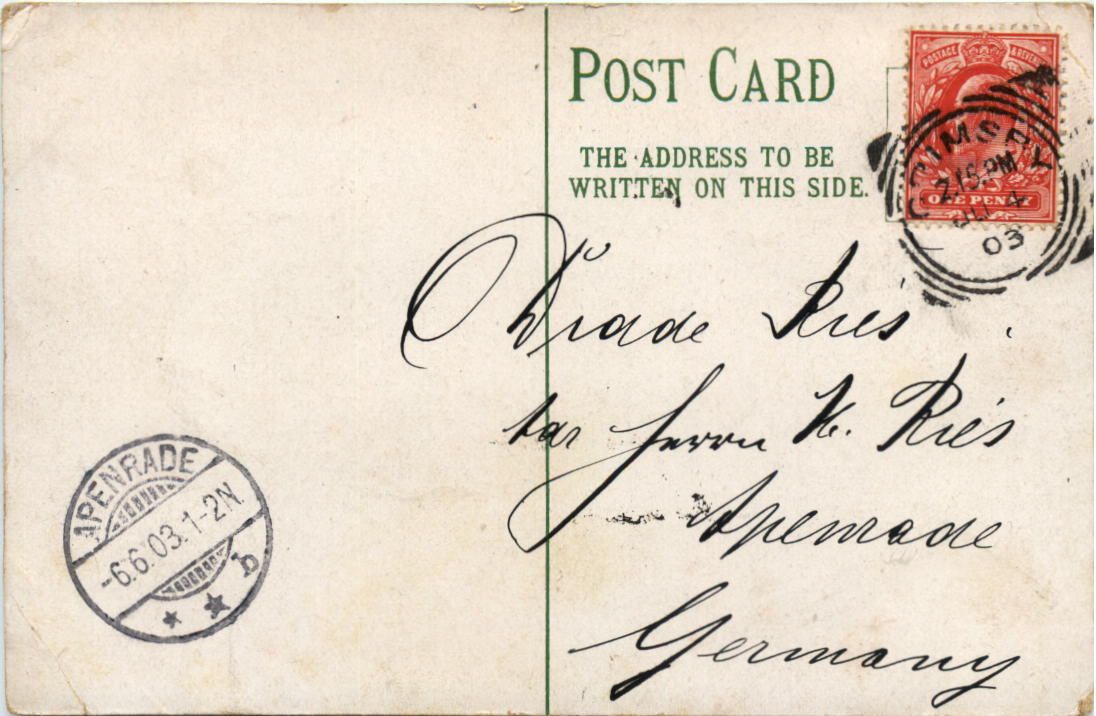 POST CARD
THE ADDRESS TO BE
WRITTEN ON THIS SIDE.
POSTAGE & REVENUE
ONE PENNY
GRIMSBY
7.15.PM
4
03
Ries
Herrn H. Ries
Apenrade
Germany
APENRADE
-6.6.03.1-2N.
b